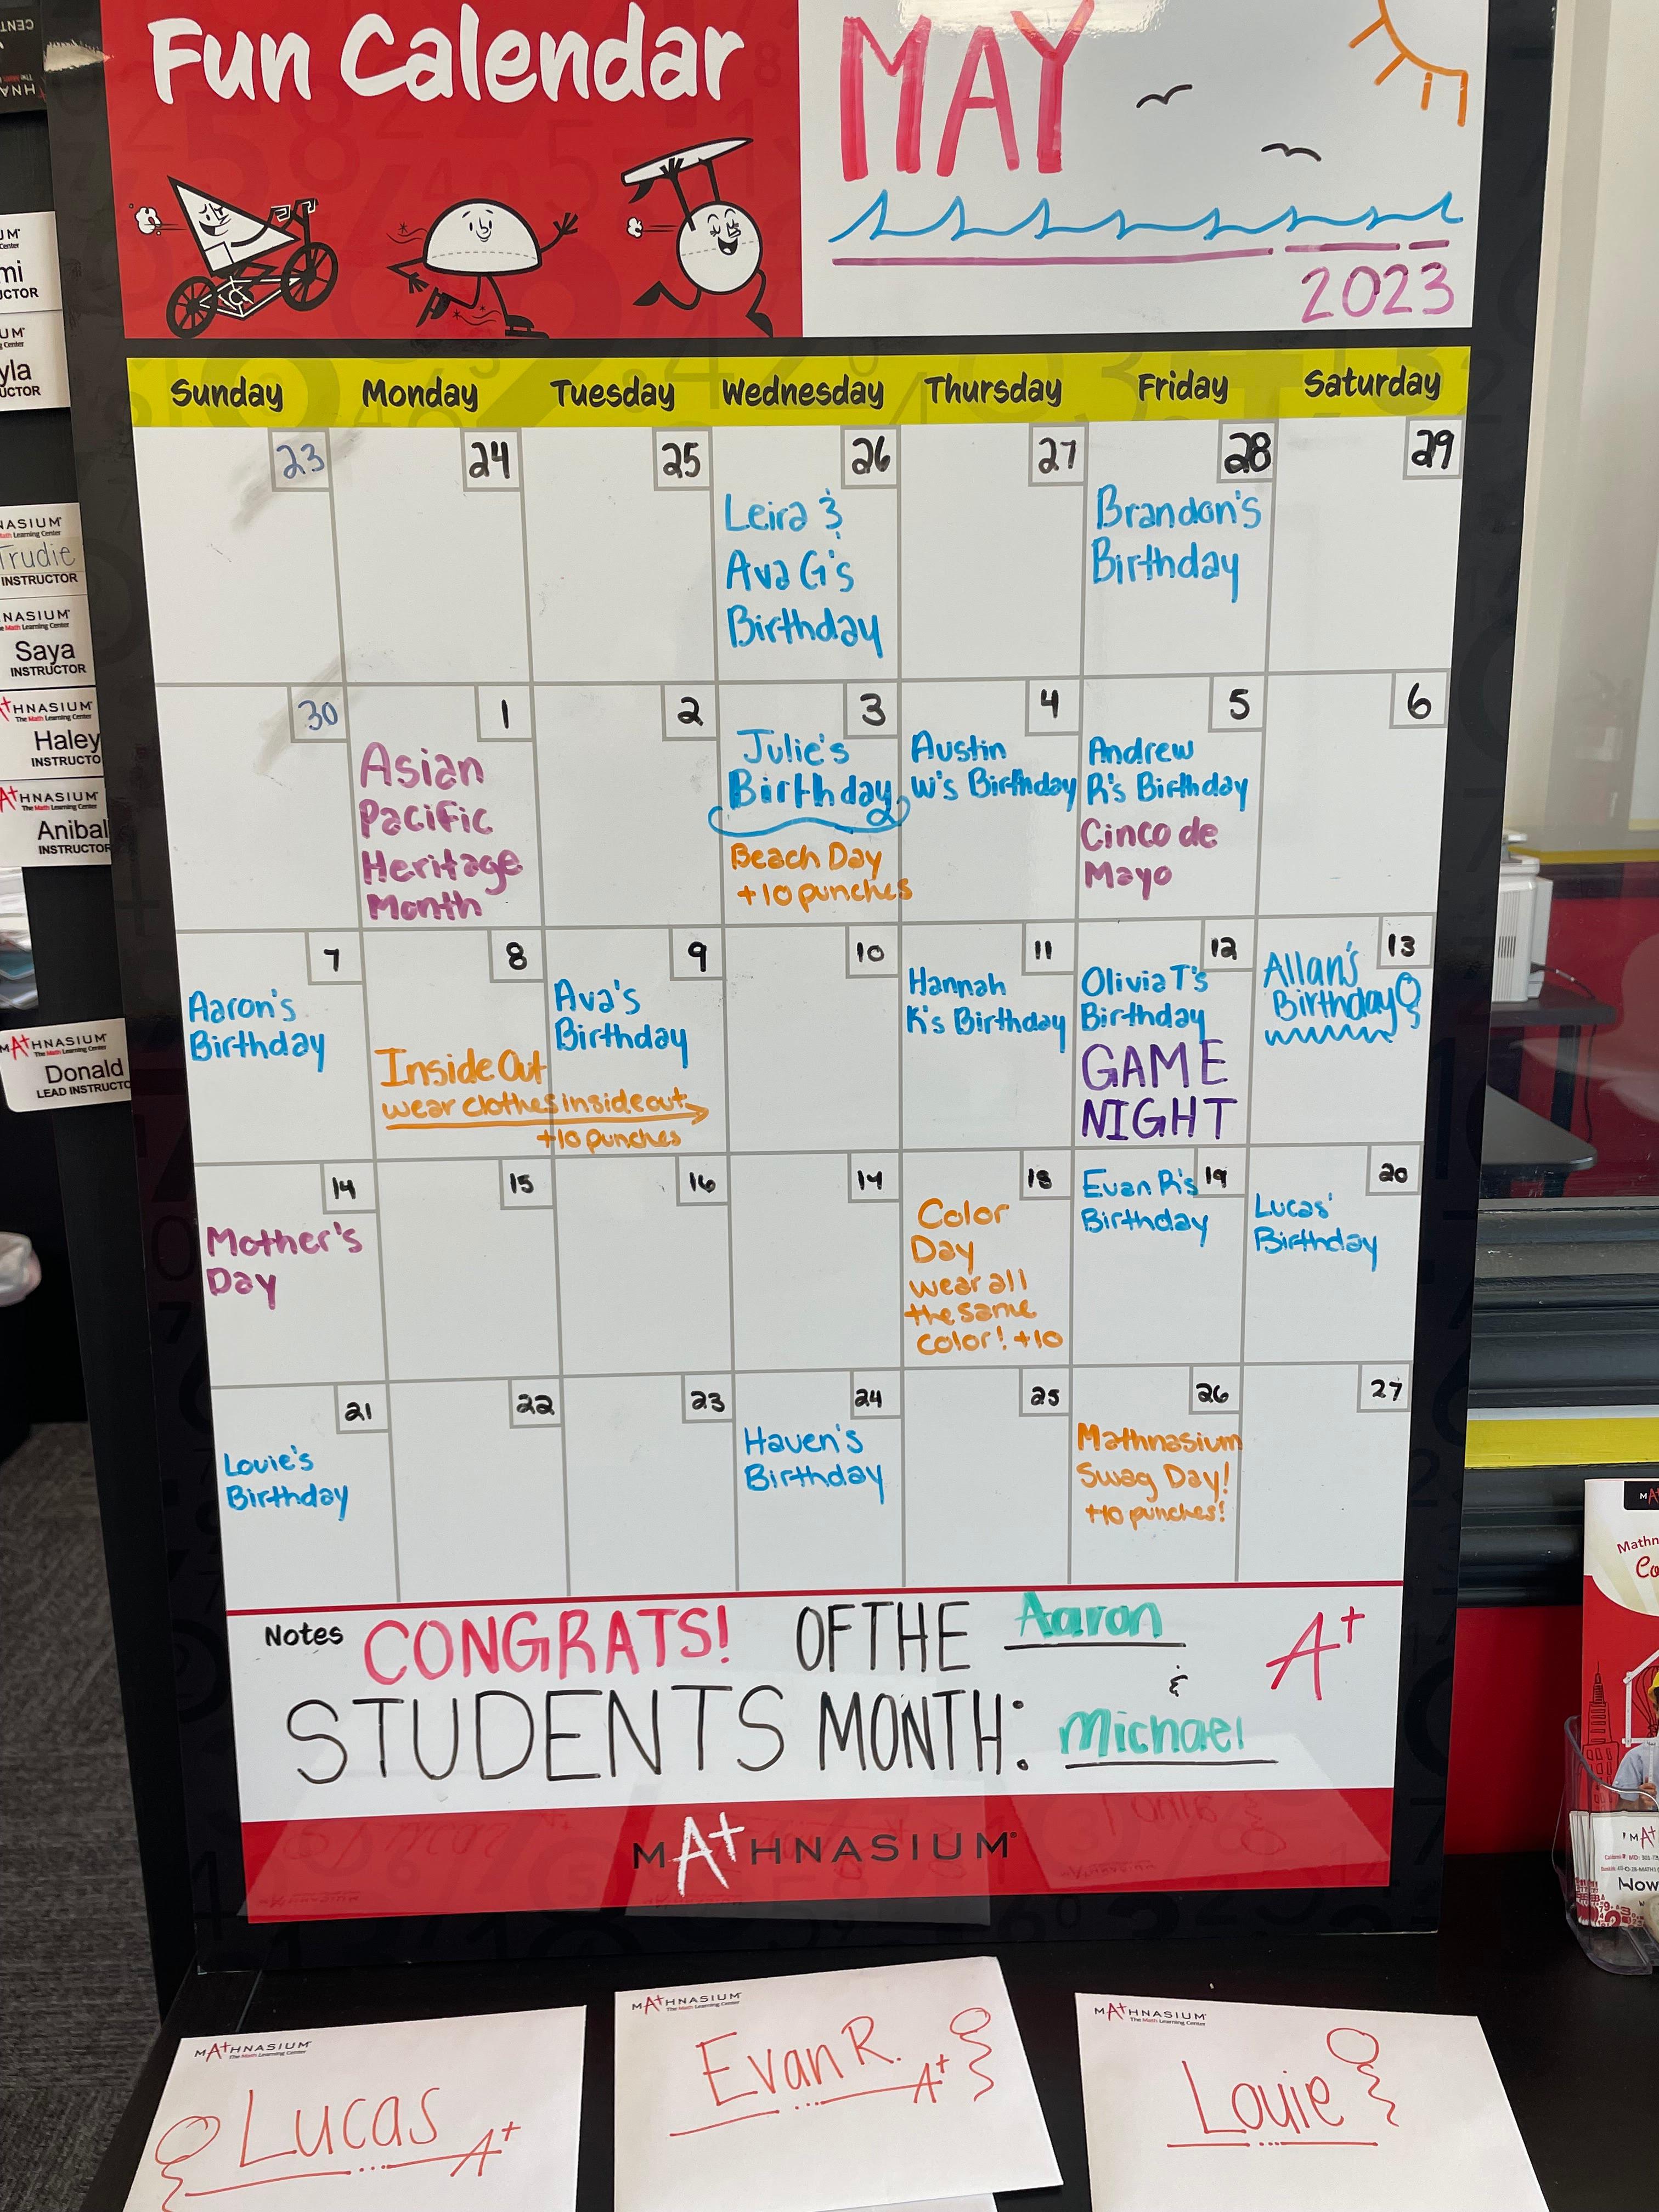 Fun Calendar
MAY
2023
Sunday Monday Tuesday Wednesday Thursday Friday Saturday
23 24 25 26 27 28 29
Leira &
Ava G's
Birthday
Brandon's
Birthday
30 1 2 3 4 5 6
Asian
Pacific
Heritage
Month
Julie's
Birthday
Beach Day
+10 punches
Austin
W's Birthday
Andrew
R's Birthday
Cinco de
Mayo
7 8 9 10 11 12 13
Aaron's
Birthday
Inside Out
wear clothes inside out
+10 punches
Ava's
Birthday
Hannah
K's Birthday
Olivia T's
Birthday
GAME
NIGHT
Allan's
Birthday
14 15 16 17 18 19 20
Mother's
Day
Color
Day
wear all
the same
color! +10
Evan R's
Birthday
Lucas'
Birthday
21 22 23 24 25 26 27
Louie's
Birthday
Haven's
Birthday
Mathnasium
Swag Day!
+10 punches!
Notes CONGRATS! OF THE Aaron A+
&
STUDENTS MONTH: Michael
MATHNASIUM
MATHNASIUM
The Math Learning Center
Lucas
A+
MATHNASIUM
The Math Learning Center
Evan R.
A+
MATHNASIUM
The Math Learning Center
Louie
Trudie
INSTRUCTOR
Saya
INSTRUCTOR
Haley
Anibal
INSTRUCTOR
MATHNASIUM
The Math Learning Center
Donald
LEAD INSTRUCTO